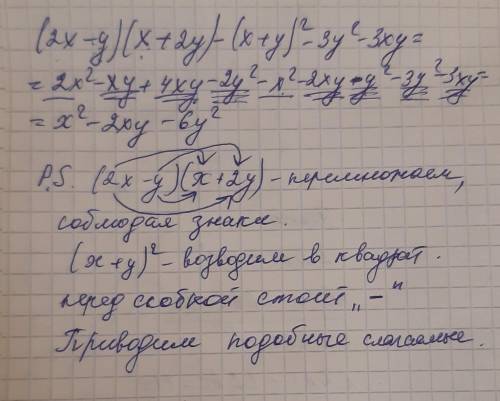 (2x-y)(x+2y)-(x+y)²-3y²-3xy=
=2x²-xy+4xy-2y²-x²-2xy-y²-3y²-3xy=
=x²-2xy-6y²
P.S. (2x-y)(x+2y)-перемножаем,
соблюдая знаки.
(x+y)²-возводим в квадрат.
перед скобкой стоит „-"
Приводим подобные слагаемые.